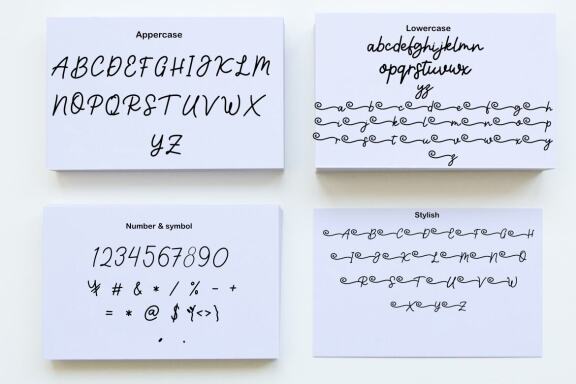 Appercase
ABCDEFGHIJKLM
NOPQRSTUVWX
YZ
Lowercase
abcdefghijklmn
opqrstuvwx
yz
a b c d e f g h
i j k l m n o p
r s t u v w x y
z
Number & symbol
1234567890
# & * / % - +
= * @ $ < > }
Stylish
A B C D E F G H
I J K L M N O
R S T U V W
X Y Z